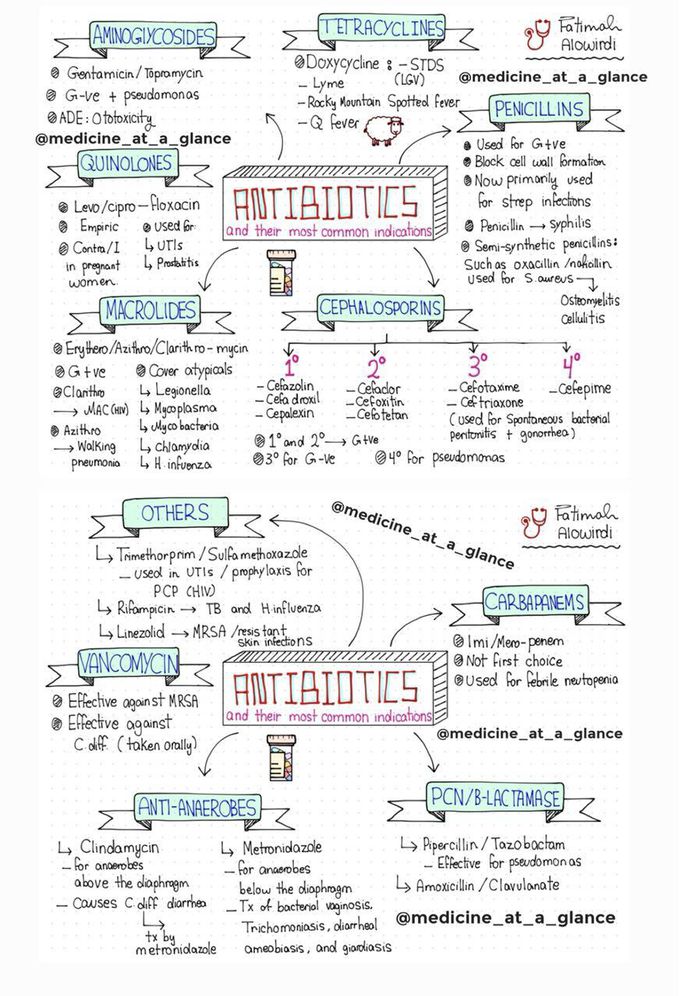 AMINOGLYCOSIDES
Gentamicin/Topramycin
G-ve + pseudomonas
ADE: Ototoxicity
@medicine_at_a_glance
TETRACYCLINES
Doxycycline : - STDS
(LGV)
- Lyme
- Rocky Mountain Spotted fever
- Q fever
Fatimah
Alowirdi
@medicine_at_a_glance
PENICILLINS
Used for G+ve
Block cell wall formation
Now primarily used
for strep infections
Penicillin → syphilis
Semi-synthetic penicillins:
Such as oxacillin /nafcillin
used for S.aureus
Osteomyelitis
cellulitis
QUINOLONES
Levo/cipro-floxacin
Empiric
Contra/I
in pregnant
women.
Used for
↳ UTIs
↳ Prostatitis
ANTIBIOTICS
and their most common indications
MACROLIDES
Erythero/Azithro/Clarithro-mycin
G+ve
Clarithro
→ MAC(HIV)
Azithro
→ Walking
pneumonia
Cover atypicals
↳ Legionella
↳ Mycoplasma
↳ Mycobacteria
↳ Chlamydia
↳ H.infuenza
CEPHALOSPORINS
1°
- Cefazolin
- Cefadroxil
- Cepalexin
2°
- Cefaclor
- Cefoxitin
- Cefotetan
3°
- Cefotaxime
- Ceftriaxone
(used for Spontaneous bacterial
peritonitis + gonorrhea)
4°
- Cefepime
1° and 2° → G+ve
3° for G-ve
4° for pseudomonas
OTHERS
↳ Trimethorprim/Sulfamethoxazole
- used in UTIs / prophylaxis for
PCP (HIV)
↳ Rifampicin → TB and H.influenza
↳ Linezolid → MRSA/resistant
skin infections
@medicine_at_a_glance
Fatimah
Alowirdi
CARBAPANEMS
Imi/Mero-penem
Not first choice
Used for febrile neutopenia
VANCOMYCIN
Effective against MRSA
Effective against
C.diff (taken orally)
ANTIBIOTICS
and their most common indications
@medicine_at_a_glance
ANTI-ANAEROBES
↳ Clindamycin
- for anaerobes
above the diaphragm
- Causes C.diff diarrhea
↳ tx by
metronidazole
↳ Metronidazole
- for anaerobes
below the diaphragm
- Tx of bacterial vaginosis,
Trichomoniasis, diarrheal
ameobiasis, and giardiasis
PCN/B-LACTAMASE
↳ Pipercillin/Tazobactam
- Effective for pseudomonas
↳ Amoxicillin/Clavulanate
@medicine_at_a_glance